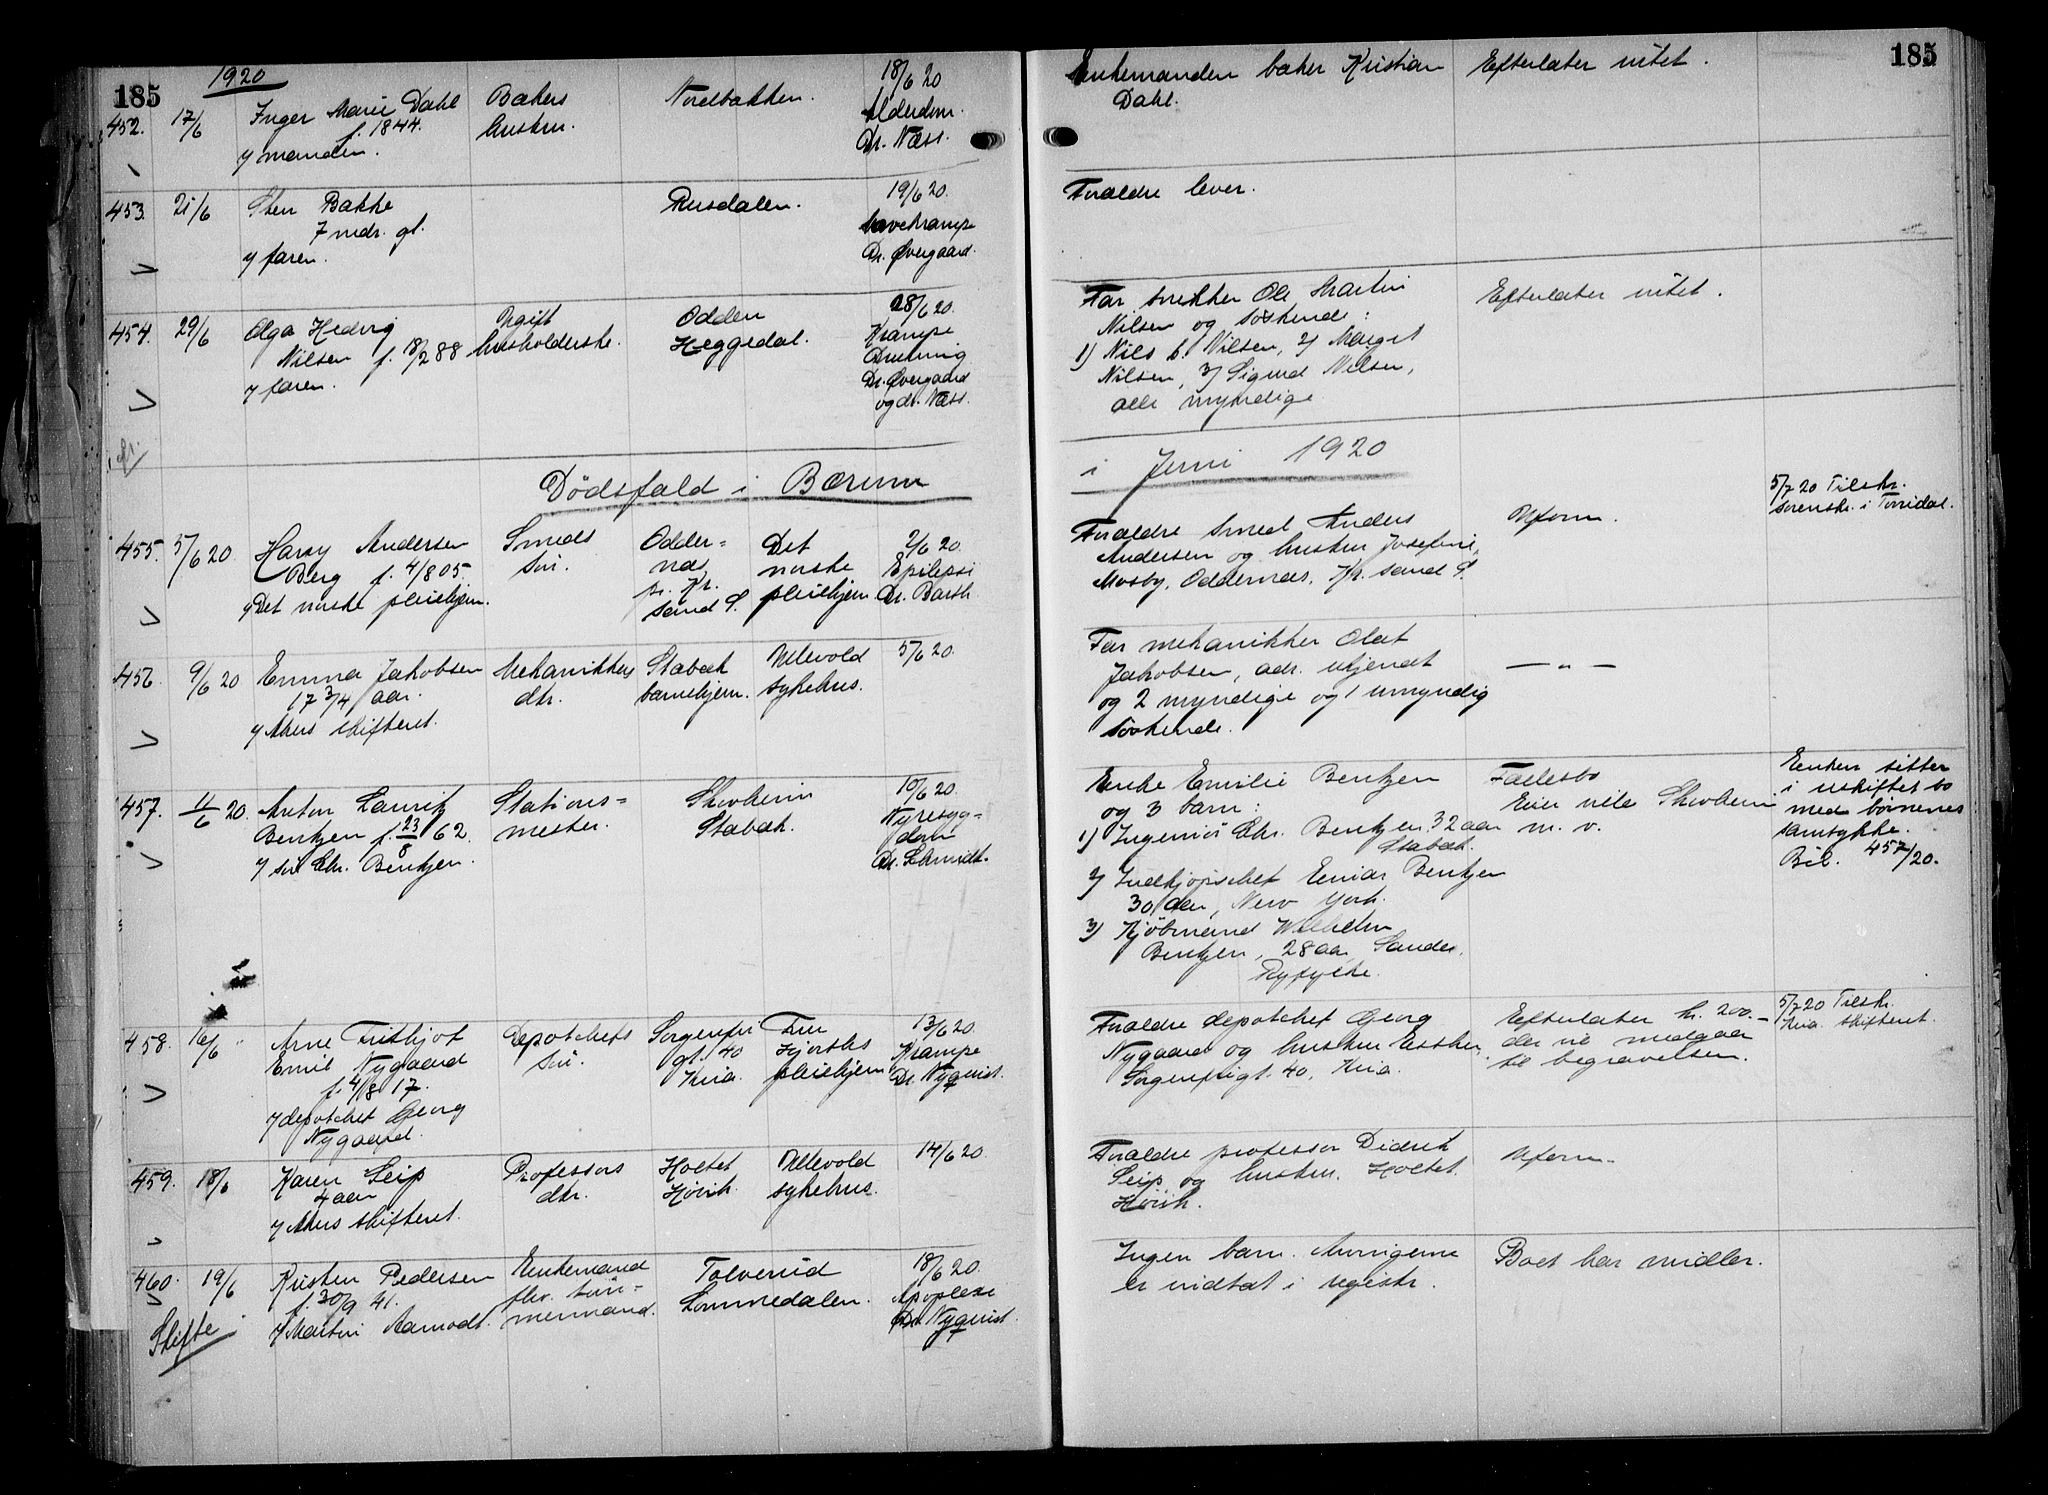 185
1920
452.
17/6
Inger Marie Dahl
f. 1844.
v/ manden.
Bakers
hustru.
Nordbakken.
18/6 20
Alderdom.
Dr. Næss.
Enkemanden baker Kristian
Dahl.
Efterlater intet.
185
453.
21/6
Sten Bakke
7 mdr. gl.
v/ faren.
Rusdalen.
19/6 20.
Lavekrampe
Dr. Øvergaard.
Forældre lever.
454.
29/6
Olga Hedvig
Nilsen f. 18/2 88
v/ faren.
Ugift
husholderske.
Odden
Heggedal.
28/6 20.
Krampe
Drukning
Dr. Øvergaard
og dr. Næss.
Far snekker Ole Martin
Nilsen og søskende:
1) Nils Nilsen, 2) Margit
Nilsen, 3) Sigurd Nilsen,
alle myndige
Efterlater intet.
Dødsfald i Bærum
i Juni 1920
455.
5/6 20.
Harry Andersen
Berg f. 4/8 05.
v/ Det norske pleiehjem.
Smeds
søn.
Odder-
næs,
pr. Kr.
sand S.
Det
norske
pleiehjem
2/6 20.
Epilepsi
Dr. Barth
Forældre smed Anders
Andersen og hustru Josefine,
Mosby, Oddernæs, Kr. sand S.
Uform.
5/7 20 Tilskr.
sorenskr. i Torridal.
456.
9/6 20
Emma Jakobsen
17 3/4 aar.
v/ Akers skifteret.
Mekanikkers
dtr.
Stabæk
barnehjem.
Ullevold
sykehus.
5/6 20.
Far mekanikker Olaf
Jakobsen, adr. ukjendt
og 2 myndige og 1 umyndig
søskende.
— " —
457.
11/6 20.
Anton Lauritz
Bentzen f. 23/8 62.
v/ søn Chr. Bentzen.
Stations-
mester.
Skovheim
Stabæk.
10/6 20.
Nyresyg-
dom
Dr. Schmidt.
Enke Emilie Bentzen
og 3 barn:
1) Ingeniør Chr. Bentzen 32 aar
Stabæk.
2) Indkjøpschef Einar Bentzen
30 aar, New York.
3) Kjøbmand Wilhelm
Bentzen, 28 aar, Sande,
Ryfylke.
Fællesbo
Eier villa Skovheim
m. v.
Enken sitter
i uskiftet bo
med børnenes
samtykke.
Bil. 457/20.
458.
16/6 "
Arne Fritjof
Emil Nygaard
f. 4/8 17.
v/ depotchef Georg
Nygaard.
Depotchefs
søn.
Sorgenfri
gt. 40
Kria.
Fru
Hjorths
pleiehjem
13/6 20.
Krampe
Dr. Nyquist.
Forældre depotchef Georg
Nygaard og hustru Esther,
Sorgenfrigt. 40, Kria.
Efterlater kr. 200.-
der vil medgaa
til begravelsen.
5/7 20 Tilskr.
Kria. skifteret.
459.
18/6
Karen Seip
4 aar
v/ Akers skifteret.
Professors
dtr.
Holtet
Høvik.
Ullevold
sykehus.
14/6 20.
Forældre professor Didrik
Seip og hustru. Holtet.
Høvik.
Uform.
460.
19/6
Kristen Pedersen
f. 30/9 41.
v/ Martin Aamodt.
Skifte
Enkemand
fhv. tøm-
mermand.
Tolverud
Lommedalen.
18/6 20.
Apoplexi
Dr. Nyquist.
Ingen barn. Arvingerne
er indtat i registr.
Boet har midler.